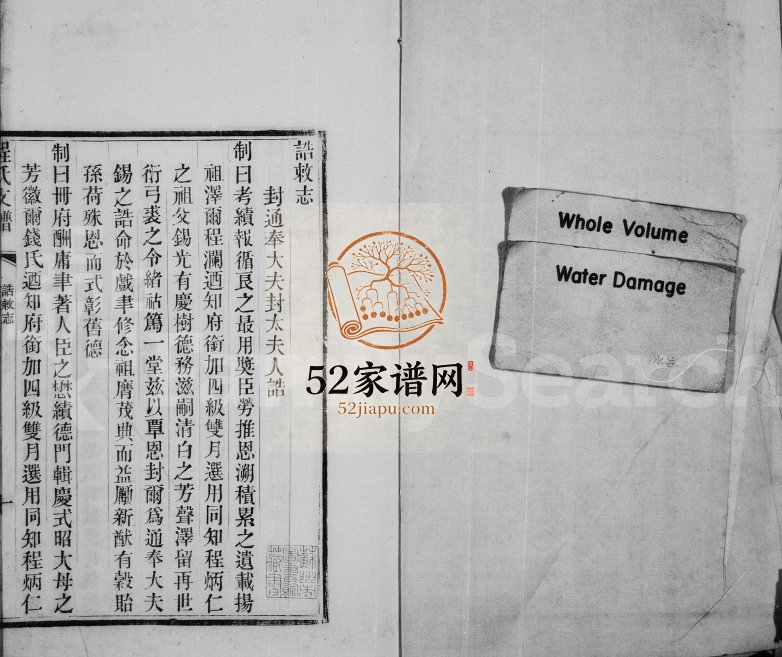 誥敕志
封通奉大夫封太夫人誥
制曰考績報循良之最用獎臣勞推恩溯積累之遺載揚
祖澤爾程瀾迺知府銜加四級雙月選用同知程炳仁
之祖父錫光有慶樹德務滋嗣清白之芳聲澤留再世
衍弓裘之令緒祜篤一堂茲以覃恩封爾爲通奉大夫
錫之誥命於戲聿修念祖膺茂典而益勵新猷有穀貽
孫荷殊恩而式彰舊德
制曰冊府酬庸聿著人臣之懋績德門輯慶式昭大母之
芳徽爾錢氏迺知府銜加四級雙月選用同知程炳仁
程氏支譜
誥敕志
一
Whole Volume
Water Damage
52家谱网
52jiapu.com